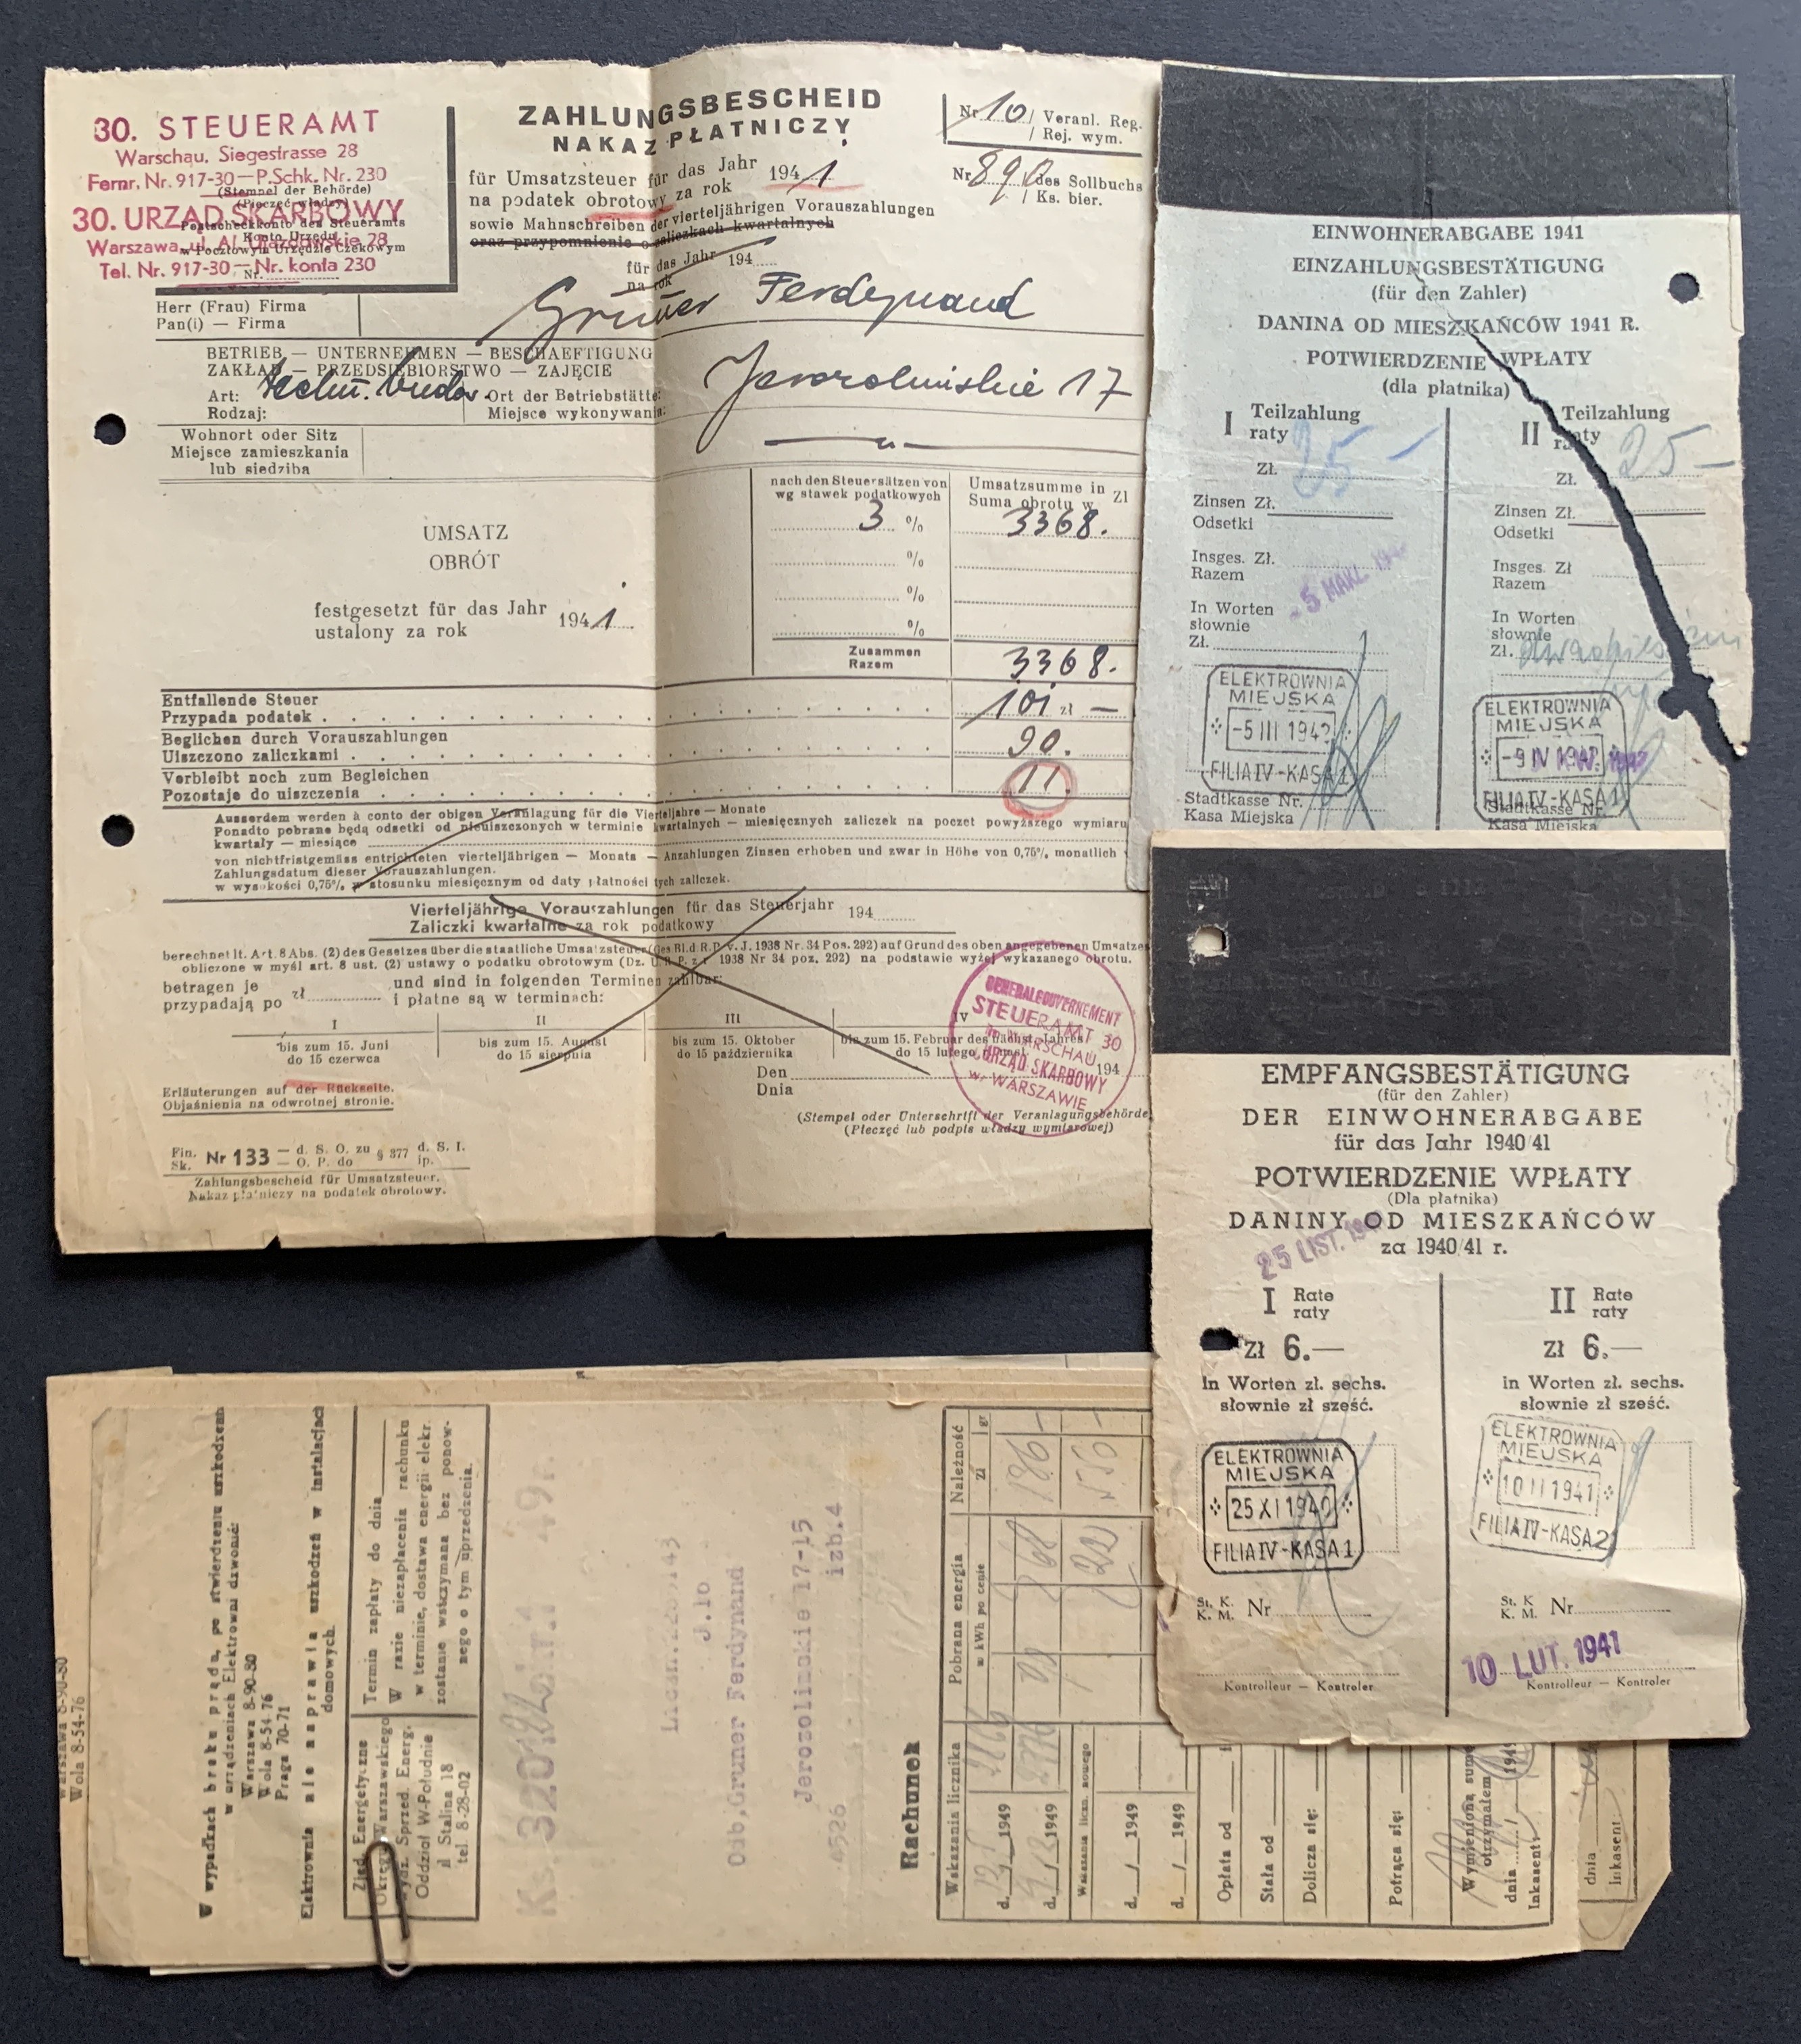 30. STEUERAMT
Warschau, Siegestrasse 28
Fernr. Nr. 917-30 — P.Schk. Nr. 230
(Stempel der Behörde)
(Pieczęć władzy)
30. URZĄD SKARBOWY
Postscheckkonto des Steueramts
Konto Urzędu
Warszawa, ul. Al. Ujazdowskie 28
w Pocztowym Urzędzie Czekowym
Tel. Nr. 917-30 — Nr. konta 230
Nr.
ZAHLUNGSBESCHEID
NAKAZ PŁATNICZY
für Umsatzsteuer für das Jahr
na podatek obrotowy za rok
1941
sowie Mahnschreiben der vierteljährigen Vorauszahlungen
oraz przypomnienie o zaliczkach kwartalnych
für das Jahr
na rok
194
Nr 10 / Veranl. Reg.
/ Rej. wym.
Nr 890 des Sollbuchs
/ Ks. bier.
Herr (Frau) Firma
Pan(i) — Firma
Grüner Ferdynand
BETRIEB — UNTERNEHMEN — BESCHAEFTIGUNG
ZAKŁAD — PRZEDSIĘBIORSTWO — ZAJĘCIE
Art:
Rodzaj:
techn. budow.
Ort der Betriebstätte:
Miejsce wykonywania:
Jerozolimskie 17
Wohnort oder Sitz
Miejsce zamieszkania
lub siedziba
— „ —
UMSATZ
OBRÓT
festgesetzt für das Jahr
ustalony za rok
1941
nach den Steuersätzen von
wg stawek podatkowych
Umsatzsumme in Zl
Suma obrotu w
3 %
3368.
%
%
%
Zusammen
Razem
3368.
Entfallende Steuer
Przypada podatek
101 zł —
Beglichen durch Vorauszahlungen
Uiszczono zaliczkami
90.
Verbleibt noch zum Begleichen
Pozostaje do uiszczenia
11.
Ausserdem werden à conto der obigen Veranlagung für die Vierteljahre — Monate
Ponadto pobrane będą odsetki od nieuiszczonych w terminie kwartalnych — miesięcznych zaliczek na poczet powyższego wymiaru
kwartały — miesiące
von nichtfristgemäss entrichteten vierteljährigen — Monats — Anzahlungen Zinsen erhoben und zwar in Höhe von 0,75% monatlich
Zahlungsdatum dieser Vorauszahlungen.
w wysokości 0,75% w stosunku miesięcznym od daty płatności tych zaliczek.
Vierteljährige Vorauszahlungen für das Steuerjahr
Zaliczki kwartalne za rok podatkowy
194
berechnet lt. Art. 8 Abs. (2) des Gesetzes über die staatliche Umsatzsteuer (Ges. Bl. d. R. P. v. J. 1938 Nr. 34 Pos. 292) auf Grund des oben angegebenen Umsatzes
obliczone w myśl art. 8 ust. (2) ustawy o podatku obrotowym (Dz. U. R. P. z r. 1938 Nr 34 poz. 292) na podstawie wyżej wykazanego obrotu.
betragen je
przypadają po
zł
und sind in folgenden Terminen zahlbar:
i płatne są w terminach:
I
II
III
IV
bis zum 15. Juni
do 15 czerwca
bis zum 15. August
do 15 sierpnia
bis zum 15. Oktober
do 15 października
bis zum 15. Februar des nächst. Jahres
do 15 lutego
Den
Dnia
194
GENERALGOUVERNEMENT
STEUERAMT 30
in WARSCHAU
URZĄD SKARBOWY
w WARSZAWIE
(Stempel oder Unterschrift der Veranlagungsbehörde)
(Pieczęć lub podpis władzy wymiarowej)
Erläuterungen auf der Rückseite.
Objaśnienia na odwrotnej stronie.
Fin. Sk. Nr 133 — d. S. O. zu § 377 d. S. I.
O. P. do ip.
Zahlungsbescheid für Umsatzsteuer.
Nakaz płatniczy na podatek obrotowy.
EINWOHNERABGABE 1941
EINZAHLUNGSBESTÄTIGUNG
(für den Zahler)
DANINA OD MIESZKAŃCÓW 1941 R.
POTWIERDZENIE WPŁATY
(dla płatnika)
I Teilzahlung
raty
Zł. 25 —
Zinsen Zł.
Odsetki
Insges. Zł.
Razem
In Worten
słownie
Zł.
ELEKTROWNIA
MIEJSKA
-5 III 1942
FILIA IV-KASA 1
Stadtkasse Nr.
Kasa Miejska
II Teilzahlung
raty
Zł. 25 —
Zinsen Zł.
Odsetki
Insges. Zł
Razem
In Worten
słownie
Zł.
ELEKTROWNIA
MIEJSKA
-9 IV
FILIA IV-KASA 1
Stadtkasse Nr.
Kasa Miejska
EMPFANGSBESTÄTIGUNG
(für den Zahler)
DER EINWOHNERABGABE
für das Jahr 1940/41
POTWIERDZENIE WPŁATY
(Dla płatnika)
DANINY OD MIESZKAŃCÓW
za 1940/41 r.
25 LIST.
I Rate
raty
Zł 6.—
in Worten zł. sechs.
słownie zł sześć.
ELEKTROWNIA
MIEJSKA
25 XI 1940
FILIA IV-KASA 1
St. K.
K. M. Nr
Kontrolleur — Kontroler
II Rate
raty
Zł 6.—
in Worten zł. sechs.
słownie zł sześć.
ELEKTROWNIA
MIEJSKA
10 II 1941
FILIA IV-KASA 2
St. K
K. M. Nr
10 LUT. 1941
Kontrolleur — Kontroler
Warszawa 8-90-80
Wola 8-54-76
W wypadkach braku prądu, po stwierdzeniu uszkodzeń
w urządzeniach Elektrowni dzwonić:
Warszawa 8-90-80
Wola 8-54-76
Praga 70-71
Elektrownia nie naprawia uszkodzeń w instalacjach
domowych.
Zjed. Energetyczne
Okręgu Warszawskiego
Wydz. Sprzed. Energ.
Oddział W-Południe
Pl Stalina 18
tel. 8-28-02
Termin zapłaty do dnia
W razie niezapłacenia rachunku
w terminie, dostawa energii elekr.
zostanie wstrzymana bez ponow-
nego o tym uprzedzenia.
49r.
J.10
Odb. Gruner Ferdynand
Jerozolimskie 17-15
izb.4
4526
Rachunek
Wskazania licznika
Pobrana energia
w kWh po cenie
Należność
Zł
gr
d. 1949
d. 1949
Wskazania liczn. nowego
d. / 1949
d. / 1949
Opłata od
Stała od
Dolicza się:
Potrąca się:
Wymienioną sumę
otrzymałem
dnia
Inkasent:
dnia
Inkasent: